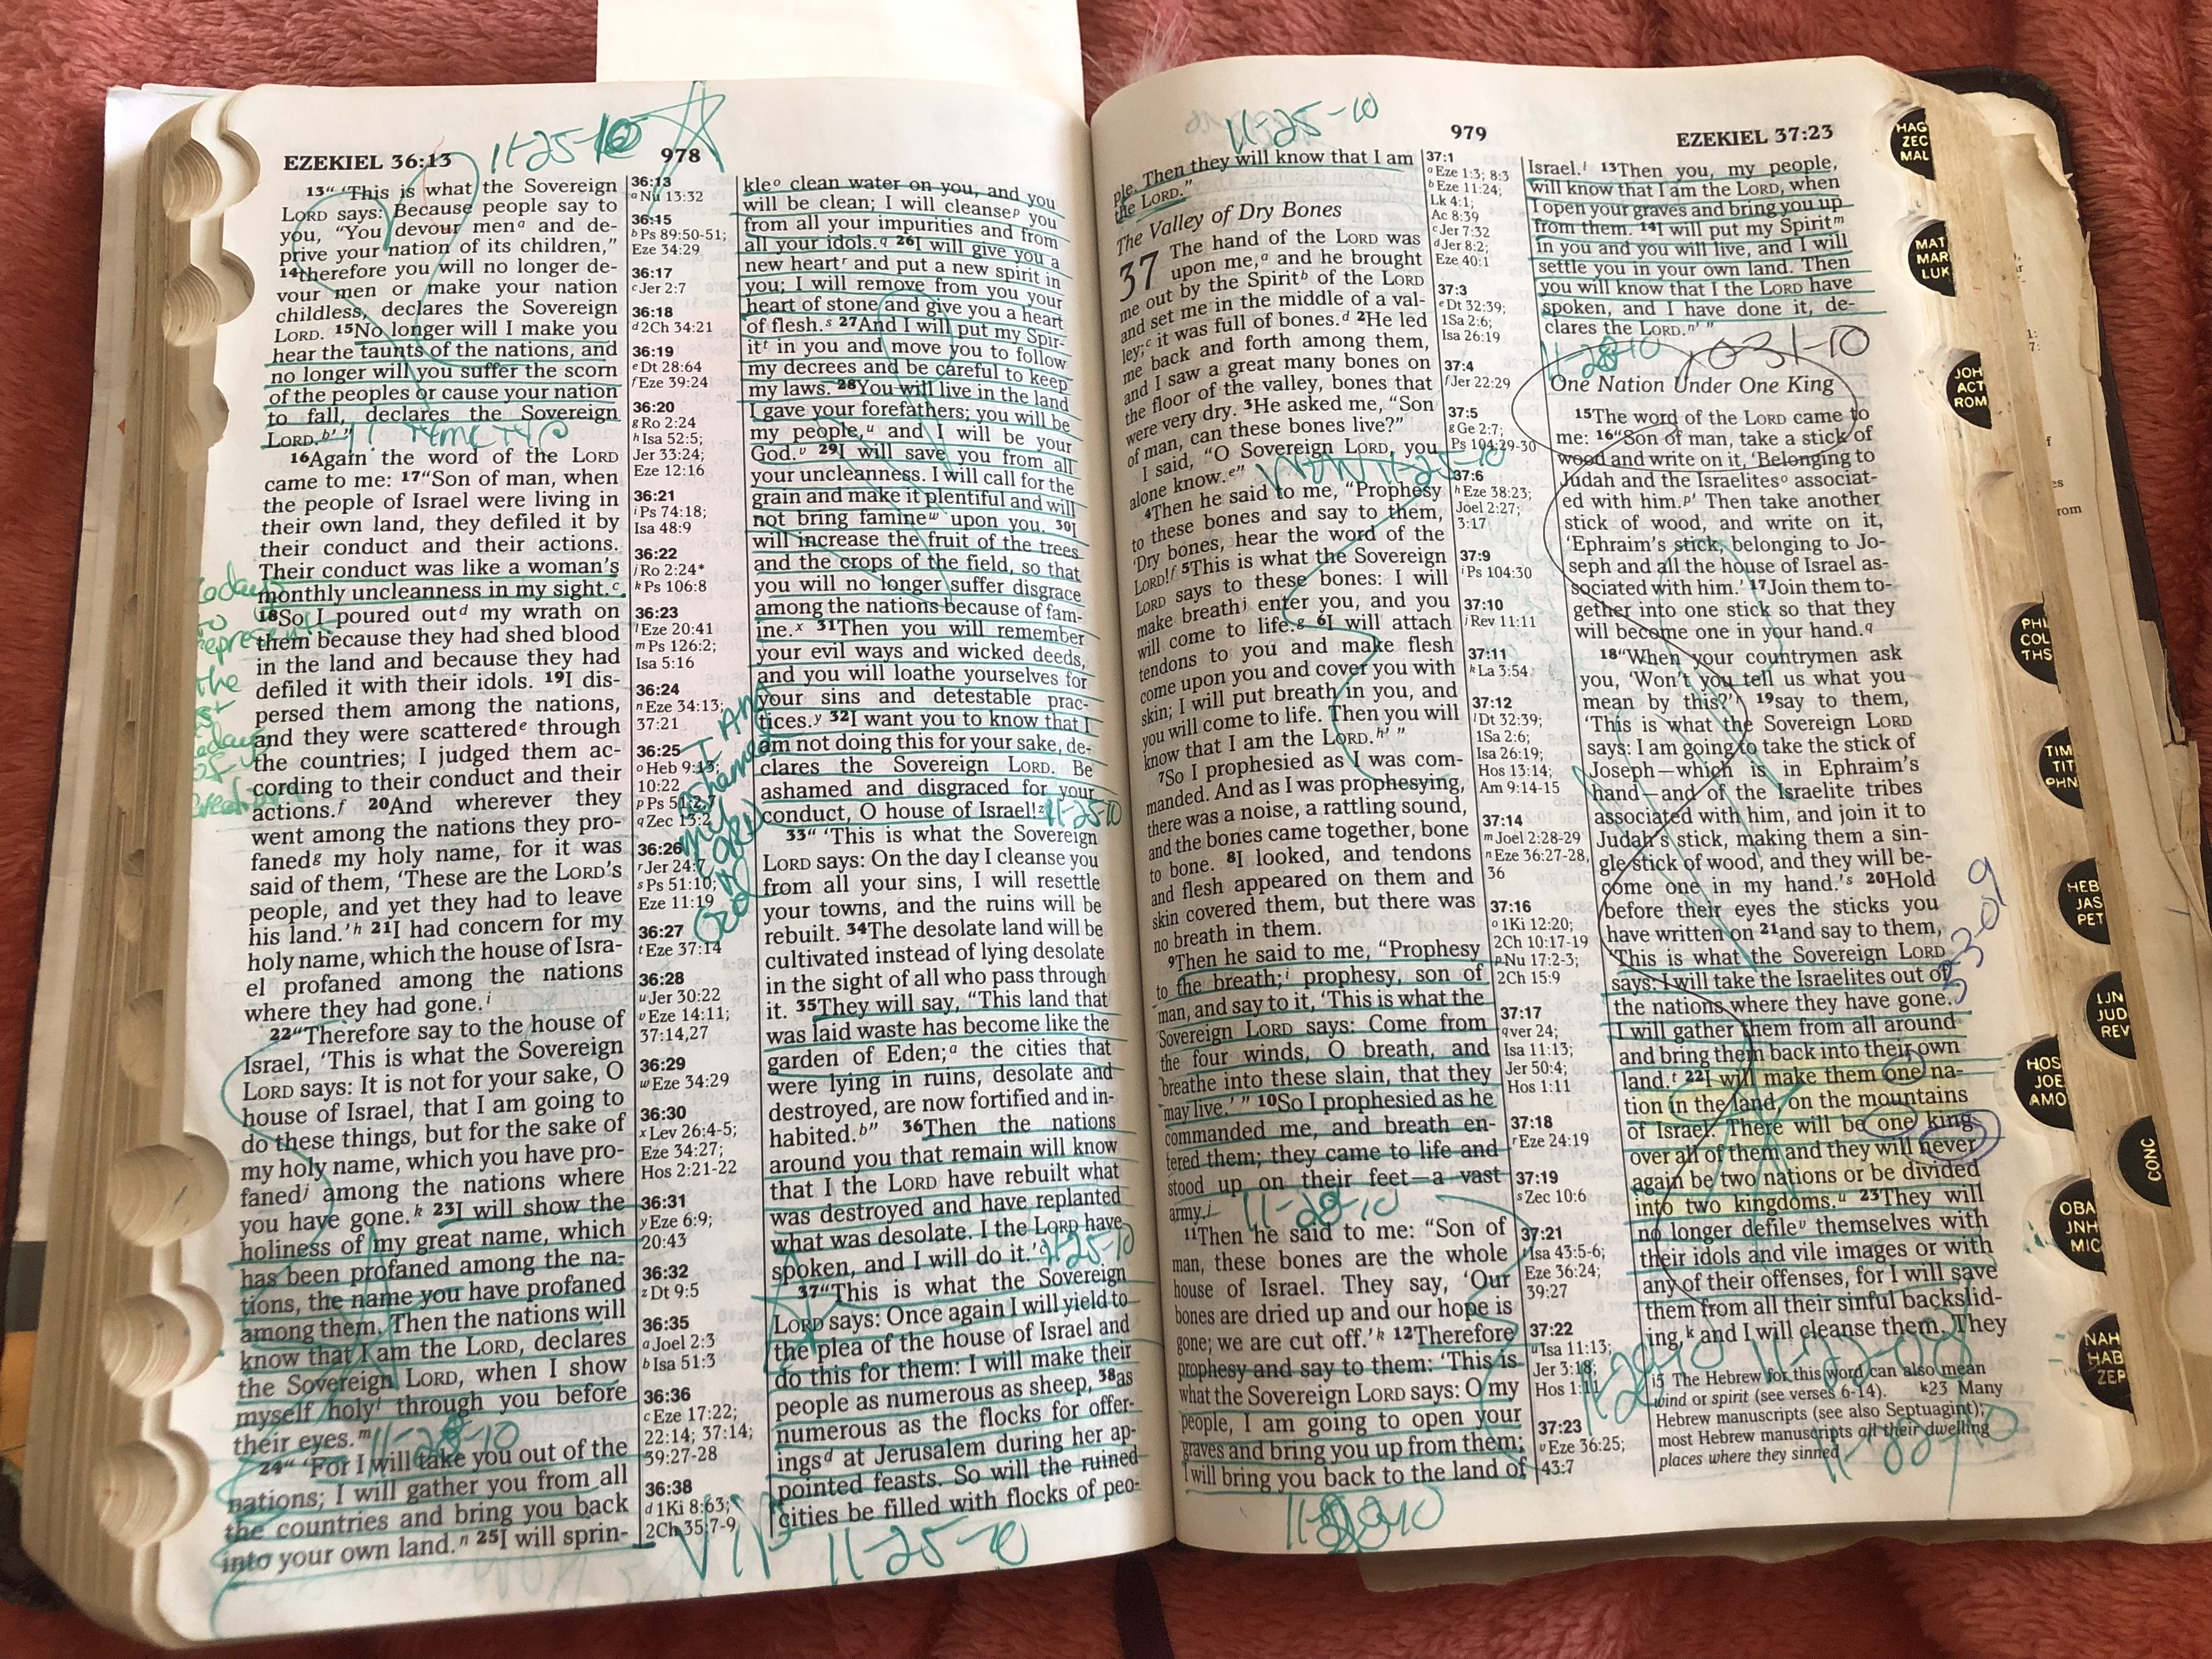 EZEKIEL 36:13
11-25-10
978
13“ ‘This is what the Sovereign
LORD says: Because people say to
you, “You devour menᵃ and de-
prive your nation of its children,”
14therefore you will no longer de-
vour men or make your nation
childless, declares the Sovereign
LORD. 15No longer will I make you
hear the taunts of the nations, and
no longer will you suffer the scorn
of the peoples or cause your nation
to fall, declares the Sovereign
LORD.ᵇ’ ”
16Again the word of the LORD
came to me: 17“Son of man, when
the people of Israel were living in
their own land, they defiled it by
their conduct and their actions.
Their conduct was like a woman’s
monthly uncleanness in my sight.ᶜ
18So I poured outᵈ my wrath on
them because they had shed blood
in the land and because they had
defiled it with their idols. 19I dis-
persed them among the nations,
and they were scatteredᵉ through
the countries; I judged them ac-
cording to their conduct and their
actions.ᶠ 20And wherever they
went among the nations they pro-
fanedᵍ my holy name, for it was
said of them, ‘These are the LORD’s
people, and yet they had to leave
his land.’ʰ 21I had concern for my
holy name, which the house of Isra-
el profaned among the nations
where they had gone.ⁱ
22“Therefore say to the house of
Israel, ‘This is what the Sovereign
LORD says: It is not for your sake, O
house of Israel, that I am going to
do these things, but for the sake of
my holy name, which you have pro-
fanedʲ among the nations where
you have gone.ᵏ 23I will show the
holiness of my great name, which
has been profaned among the na-
tions, the name you have profaned
among them. Then the nations will
know that I am the LORD, declares
the Sovereign LORD, when I show
myself holyˡ through you before
their eyes.ᵐ
11-28-10
24“ ‘For I will take you out of the
nations; I will gather you from all
the countries and bring you back
into your own land.ⁿ 25I will sprin-
the
36:13
a Nu 13:32
36:15
b Ps 89:50-51;
Eze 34:29
36:17
c Jer 2:7
36:18
d 2Ch 34:21
36:19
e Dt 28:64
f Eze 39:24
36:20
g Ro 2:24
h Isa 52:5;
Jer 33:24;
Eze 12:16
36:21
i Ps 74:18;
Isa 48:9
36:22
j Ro 2:24*
k Ps 106:8
36:23
l Eze 20:41
m Ps 126:2;
Isa 5:16
36:24
n Eze 34:13;
37:21
36:25
o Heb 9:13;
10:22
p Ps 51:2,7
q Zec 13:2
36:26
r Jer 24:7
s Ps 51:10;
Eze 11:19
36:27
t Eze 37:14
36:28
u Jer 30:22
v Eze 14:11;
37:14,27
36:29
w Eze 34:29
36:30
x Lev 26:4-5;
Eze 34:27;
Hos 2:21-22
36:31
y Eze 6:9;
20:43
36:32
z Dt 9:5
36:35
a Joel 2:3
b Isa 51:3
36:36
c Eze 17:22;
22:14; 37:14;
39:27-28
36:38
d 1Ki 8:63;
2Ch 35:7-9
I AM
ashamed
my
LORD
GOD
kleᵒ clean water on you, and you
will be clean; I will cleanseᵖ you
from all your impurities and from
all your idols.q 26I will give you a
new heartʳ and put a new spirit in
you; I will remove from you your
heart of stone and give you a heart
of flesh.ˢ 27And I will put my Spir-
itᵗ in you and move you to follow
my decrees and be careful to keep
my laws. 28You will live in the land
I gave your forefathers; you will be
my people,ᵘ and I will be your
God.ᵛ 29I will save you from all
your uncleanness. I will call for the
grain and make it plentiful and will
not bring famineʷ upon you. 30I
will increase the fruit of the trees
and the crops of the field, so that
you will no longer suffer disgrace
among the nations because of fam-
ine.ˣ 31Then you will remember
your evil ways and wicked deeds,
and you will loathe yourselves for
your sins and detestable prac-
tices.ʸ 32I want you to know that I
am not doing this for your sake, de-
clares the Sovereign LORD. Be
ashamed and disgraced for your
conduct, O house of Israel!ᶻ 11-25-10
33“ ‘This is what the Sovereign
LORD says: On the day I cleanse you
from all your sins, I will resettle
your towns, and the ruins will be
rebuilt. 34The desolate land will be
cultivated instead of lying desolate
in the sight of all who pass through
it. 35They will say, “This land that
was laid waste has become like the
garden of Eden;ᵃ the cities that
were lying in ruins, desolate and
destroyed, are now fortified and in-
habited.ᵇ” 36Then the nations
around you that remain will know
that I the LORD have rebuilt what
was destroyed and have replanted
what was desolate. I the LORD have
spoken, and I will do it.’ᶜ 11-25-10
37“This is what the Sovereign
LORD says: Once again I will yield to
the plea of the house of Israel and
do this for them: I will make their
people as numerous as sheep, 38as
numerous as the flocks for offer-
ingsᵈ at Jerusalem during her ap-
pointed feasts. So will the ruined
cities be filled with flocks of peo-
VIP 11-25-10
11-25-10
979
EZEKIEL 37:23
ple. Then they will know that I am
the LORD.”
The Valley of Dry Bones
37 The hand of the LORD was
upon me,ᵃ and he brought
me out by the Spiritᵇ of the LORD
and set me in the middle of a val-
ley;ᶜ it was full of bones.ᵈ 2He led
me back and forth among them,
and I saw a great many bones on
the floor of the valley, bones that
were very dry. 3He asked me, “Son
of man, can these bones live?”
I said, “O Sovereign LORD, you
alone know.ᵉ”
WOW 11-25-10
4Then he said to me, “Prophesy
to these bones and say to them,
‘Dry bones, hear the word of the
LORD!ᶠ 5This is what the Sovereign
LORD says to these bones: I will
make breathⁱ enter you, and you
will come to life.ᵍ 6I will attach
tendons to you and make flesh
come upon you and cover you with
skin; I will put breath in you, and
you will come to life. Then you will
know that I am the LORD.ʰ’ ”
7So I prophesied as I was com-
manded. And as I was prophesying,
there was a noise, a rattling sound,
and the bones came together, bone
to bone. 8I looked, and tendons
and flesh appeared on them and
skin covered them, but there was
no breath in them.
9Then he said to me, “Prophesy
to the breath;ⁱ prophesy, son of
man, and say to it, ‘This is what the
Sovereign LORD says: Come from
the four winds, O breath, and
breathe into these slain, that they
may live.’ ” 10So I prophesied as he
commanded me, and breath en-
tered them; they came to life and
stood up on their feet—a vast
army.ʲ
11-28-10
11Then he said to me: “Son of
man, these bones are the whole
house of Israel. They say, ‘Our
bones are dried up and our hope is
gone; we are cut off.’ᵏ 12Therefore
prophesy and say to them: ‘This is
what the Sovereign LORD says: O my
people, I am going to open your
graves and bring you up from them;
I will bring you back to the land of
37:1
a Eze 1:3; 8:3
b Eze 11:24;
Lk 4:1;
Ac 8:39
c Jer 7:32
d Jer 8:2;
Eze 40:1
37:3
e Dt 32:39;
1Sa 2:6;
Isa 26:19
37:4
f Jer 22:29
37:5
g Ge 2:7;
Ps 104:29-30
37:6
h Eze 38:23;
Joel 2:27;
3:17
37:9
i Ps 104:30
37:10
j Rev 11:11
37:11
k La 3:54
37:12
l Dt 32:39;
1Sa 2:6;
Isa 26:19;
Hos 13:14;
Am 9:14-15
37:14
m Joel 2:28-29
n Eze 36:27-28,
36
37:16
o 1Ki 12:20;
2Ch 10:17-19
p Nu 17:2-3;
2Ch 15:9
37:17
q ver 24;
Isa 11:13;
Jer 50:4;
Hos 1:11
37:18
r Eze 24:19
37:19
s Zec 10:6
37:21
t Isa 43:5-6;
Eze 36:24;
39:27
37:22
u Isa 11:13;
Jer 3:18;
Hos 1:11
37:23
v Eze 36:25;
43:7
Israel.ˡ 13Then you, my people,
will know that I am the LORD, when
I open your graves and bring you up
from them. 14I will put my Spiritᵐ
in you and you will live, and I will
settle you in your own land. Then
you will know that I the LORD have
spoken, and I have done it, de-
clares the LORD.ⁿ’ ”
11-28-10 1031-10
One Nation Under One King
15The word of the LORD came to
me: 16“Son of man, take a stick of
wood and write on it, ‘Belonging to
Judah and the Israelitesᵒ associat-
ed with him.ᵖ’ Then take another
stick of wood, and write on it,
‘Ephraim’s stick, belonging to Jo-
seph and all the house of Israel as-
sociated with him.’ 17Join them to-
gether into one stick so that they
will become one in your hand.q
18“When your countrymen ask
you, ‘Won’t you tell us what you
mean by this?’ʳ 19say to them,
‘This is what the Sovereign LORD
says: I am going to take the stick of
Joseph—which is in Ephraim’s
hand—and of the Israelite tribes
associated with him, and join it to
Judah’s stick, making them a sin-
gle stick of wood, and they will be-
come one in my hand.’ˢ 20Hold
before their eyes the sticks you
have written on 21and say to them,
‘This is what the Sovereign LORD
says: I will take the Israelites out of
the nations where they have gone.
I will gather them from all around
and bring them back into their own
land.ᵗ 22I will make them one na-
tion in the land, on the mountains
of Israel. There will be one king
over all of them and they will never
again be two nations or be divided
into two kingdoms.ᵘ 23They will
no longer defileᵛ themselves with
their idols and vile images or with
any of their offenses, for I will save
them from all their sinful backslid-
ing,ᵏ and I will cleanse them. They
i5 The Hebrew for this word can also mean
wind or spirit (see verses 6-14). k23 Many
Hebrew manuscripts (see also Septuagint);
most Hebrew manuscripts all their dwelling
places where they sinned
HAG
ZEC
MAL
MAT
MAR
LUK
JOH
ACT
ROM
PHI
COL
THS
TIM
TIT
PHN
HEB
JAS
PET
1JN
JUD
REV
HOS
JOE
AMO
CONC
OBA
JNH
MIC
NAH
HAB
ZEP